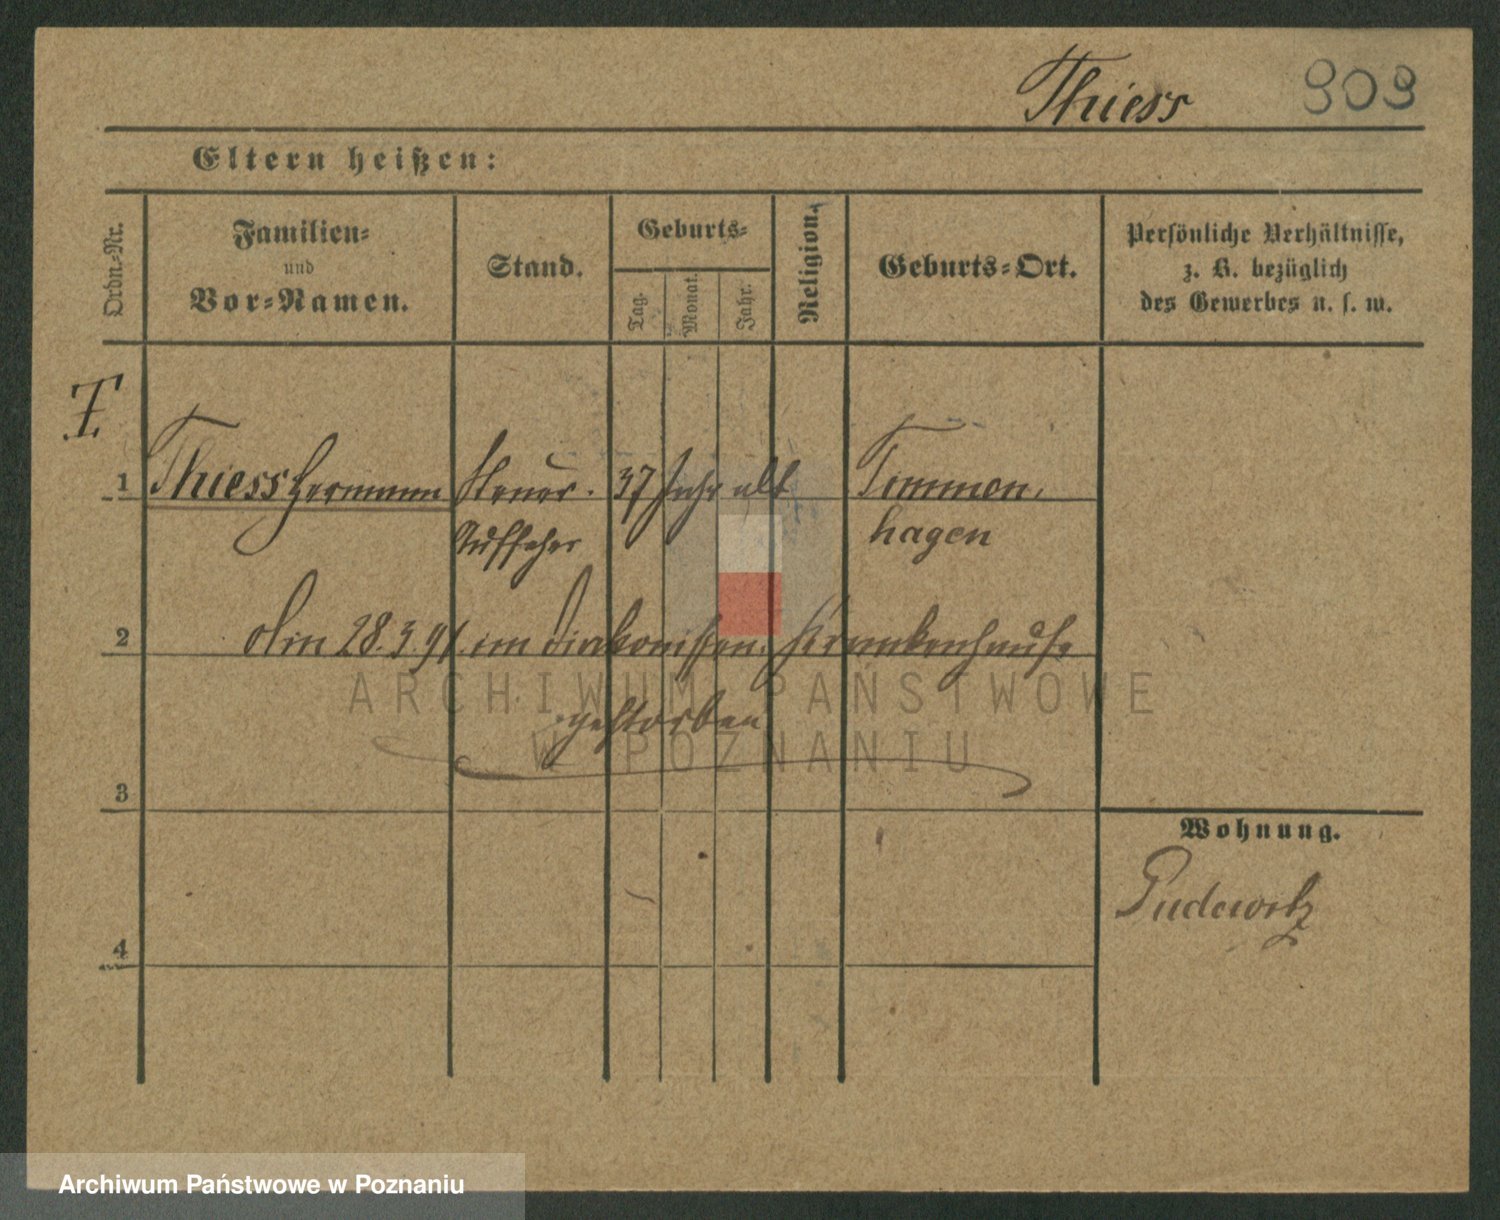 Thiess 303
Eltern heißen:
Ordn.-Nr.
Familien-
und
Vor-Namen.
Stand.
Geburts-
Tag.
Monat.
Jahr.
Religion.
Geburts-Ort.
Persönliche Verhältnisse,
z. B. bezüglich
des Gewerbes u. s. w.
1 Thiess Hermann Steuer- 37 Jahr alt Timmen-
Aufseher hagen
2 Am 28.3.91 im Diakonissen-Krankenhause
gestorben
ARCHIWUM PAŃSTWOWE
W POZNANIU
3
Wohnung.
Pudewitz
4
Archiwum Państwowe w Poznaniu